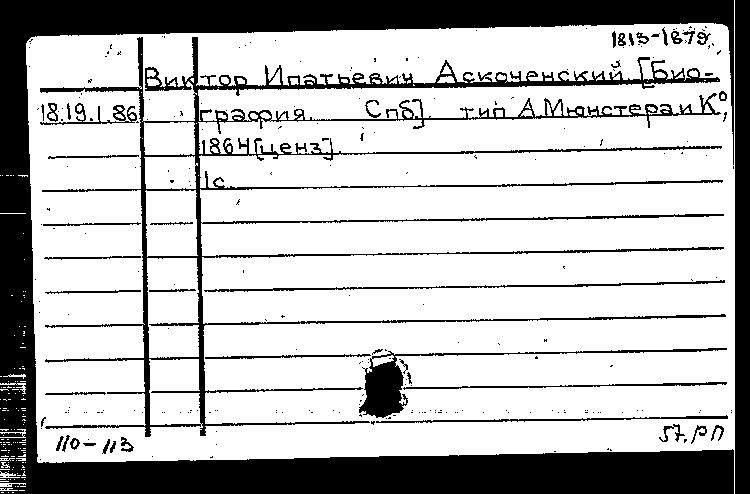 1813-1879.
Виктор Ипатьевич Аскоченский [Био-
18.19.1.86 графия. Спб]. тип А.Мюнстера и К⁰,
1864 [ценз].
1с.
110-113 57.РП